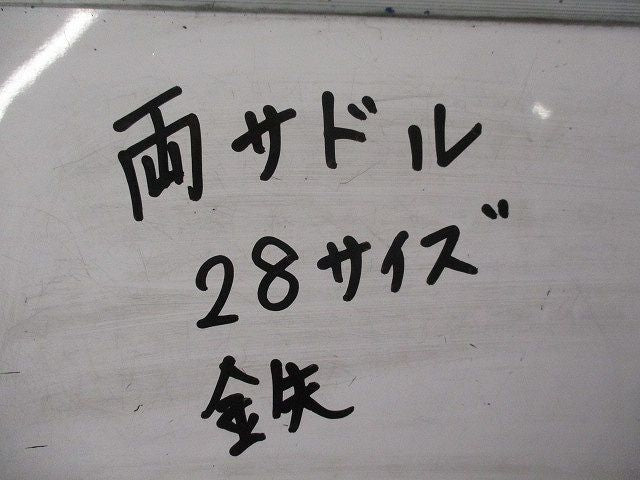 両サドル
28サイズ
鉄